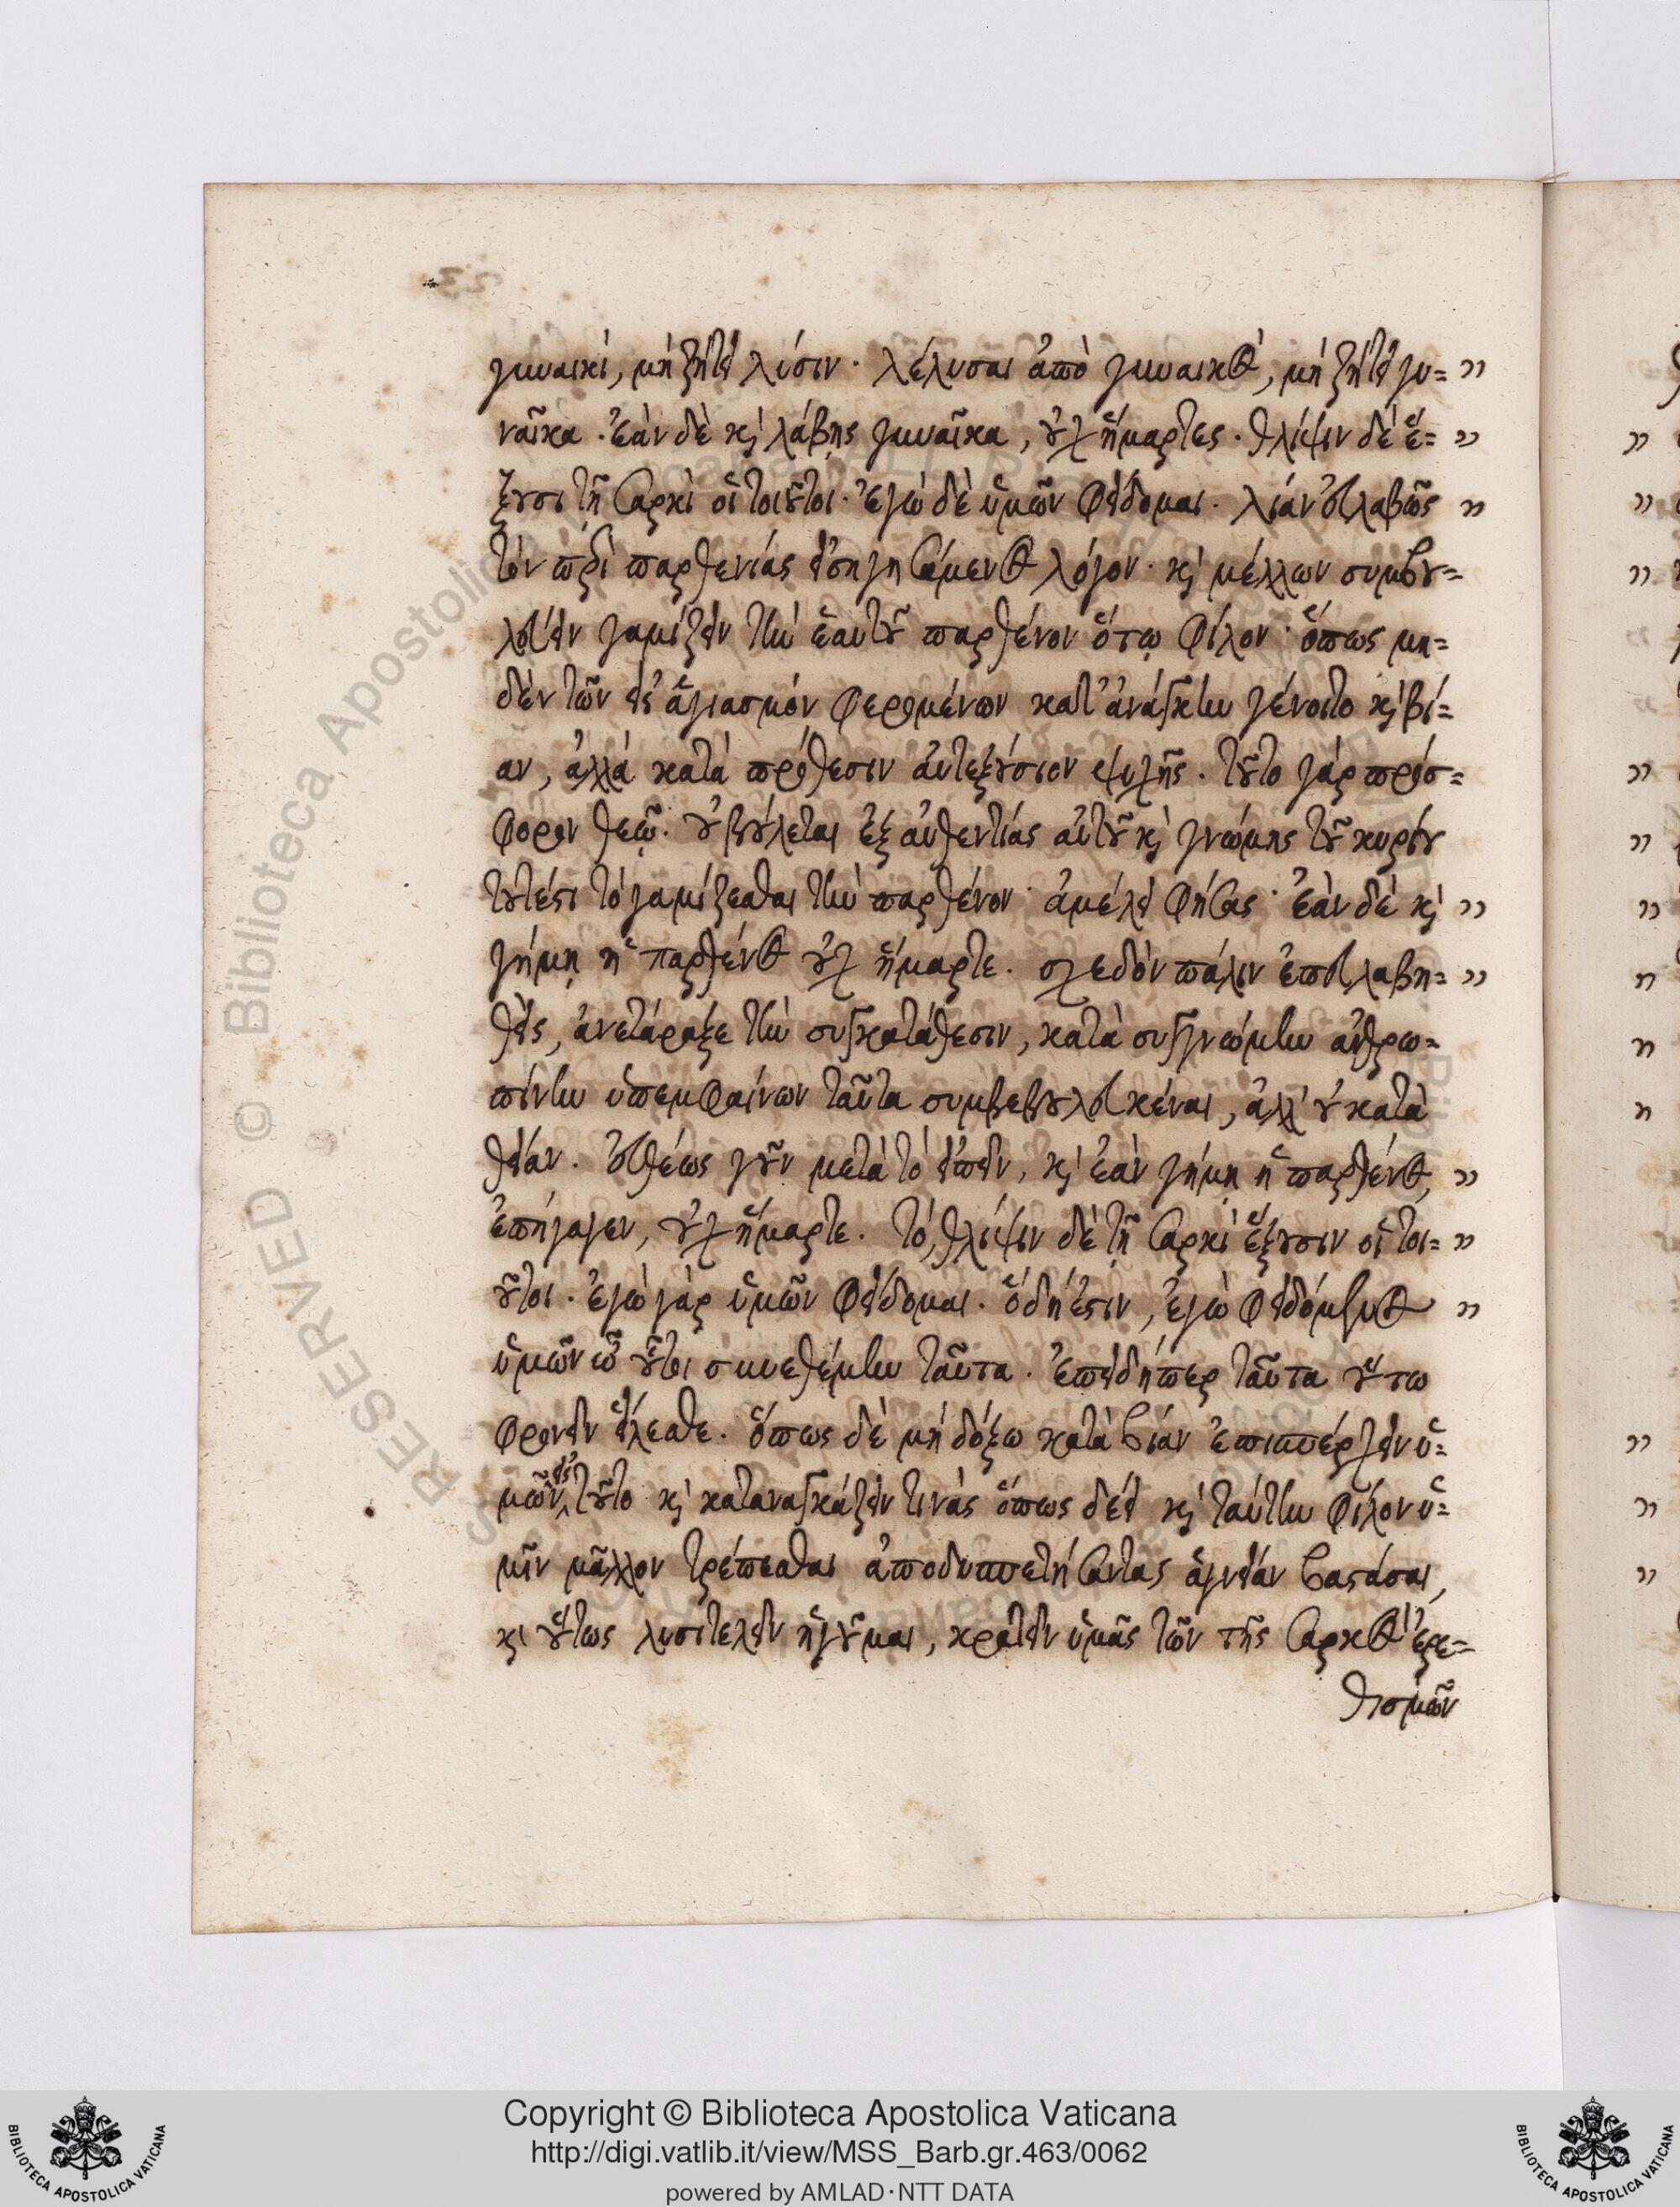 γυναικὶ, μὴ ζήτει λύσιν · λέλυσαι ἀπὸ γυναικὸς, μὴ ζήτει γυ= »
ναῖκα · ἐὰν δὲ κὶ λάβῃς γυναῖκα, οὐχ ἥμαρτες · θλίψιν δὲ ἕ= »
ξουσι τῇ σαρκὶ οἱ τοιοῦτοι · ἐγὼ δὲ ὑμῶν φείδομαι · λίαν εὐλαβῶς »
τὸν περὶ παρθενίας εἰσηγησάμενος λόγον · κὶ μέλλων συμβου=
λεύειν γαμίζειν τὴν ἑαυτοῦ παρθένον ὅτῳ φίλον · ὅπως μη=
δὲν τῶν εἰς ἁγιασμὸν φερομένων κατ' ἀνάγκην γένοιτο κὶ βί=
αν, ἀλλὰ κατὰ πρόθεσιν αὐτεξούσιον ψυχῆς · τοῦτο γὰρ πρόσ=
φορον θεῷ · οὐ βούλεται ἐξ αὐθεντίας αὐτοῦ κὶ γνώμης τοῦ κυρίου
τουτέστι τὸ γαμίζεσθαι τὴν παρθένον · ἀμέλει φήσας · ἐὰν δὲ κὶ »
γήμῃ ἡ παρθένος οὐχ ἥμαρτε · σχεδὸν πάλιν ἐπευλαβη= »
θεὶς, ἀνετάραξε τὴν συγκατάθεσιν, κατὰ συγγνώμην ἀνθρω=
πίνην ὑπεμφαίνων ταῦτα συμβεβουλευκέναι, ἀλλ' οὐ κατὰ
θείαν · εὐθέως γοῦν μετὰ τὸ εἰπεῖν, κὶ ἐὰν γήμῃ ἡ παρθένος, »
ἐπήγαγεν, οὐχ ἥμαρτε · τὸ, θλίψιν δὲ τῇ σαρκὶ ἕξουσιν οἱ τοι= »
οῦτοι · ἐγὼ γὰρ ὑμῶν φείδομαι · ὃ δή ἐστιν, ἐγὼ φειδόμενος »
ὑμῶν οὗτοι συνεθέμην ταῦτα · ἐπειδήπερ ταῦτα οὕτω
φρονεῖν εἵλεσθε · ὅπως δὲ μὴ δόξω κατὰ βίαν ἐπισπέρχειν ὑ=
μῶν εἰς τοῦτο κὶ καταναγκάζειν τινὰς ὅπως δέει κὶ ταύτην φίλον ὑ=
μῖν μᾶλλον τρέπεσθαι ἀποδυσπετήσαντας ἁγνείαν βαστάσαι,
κὶ οὕτως λυσιτελεῖν ἡγοῦμαι, κρατεῖν ὑμᾶς τῶν τῆς σαρκὸς ἐρε=
θισμῶν
Copyright © Biblioteca Apostolica Vaticana
http://digi.vatlib.it/view/MSS_Barb.gr.463/0062
powered by AMLAD·NTT DATA